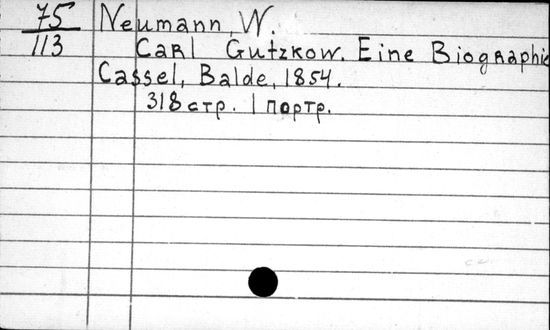 75 Neumann, W.
113 Carl Gutzkow. Eine Biographie
Cassel, Balde, 1854.
318 стр. 1 портр.